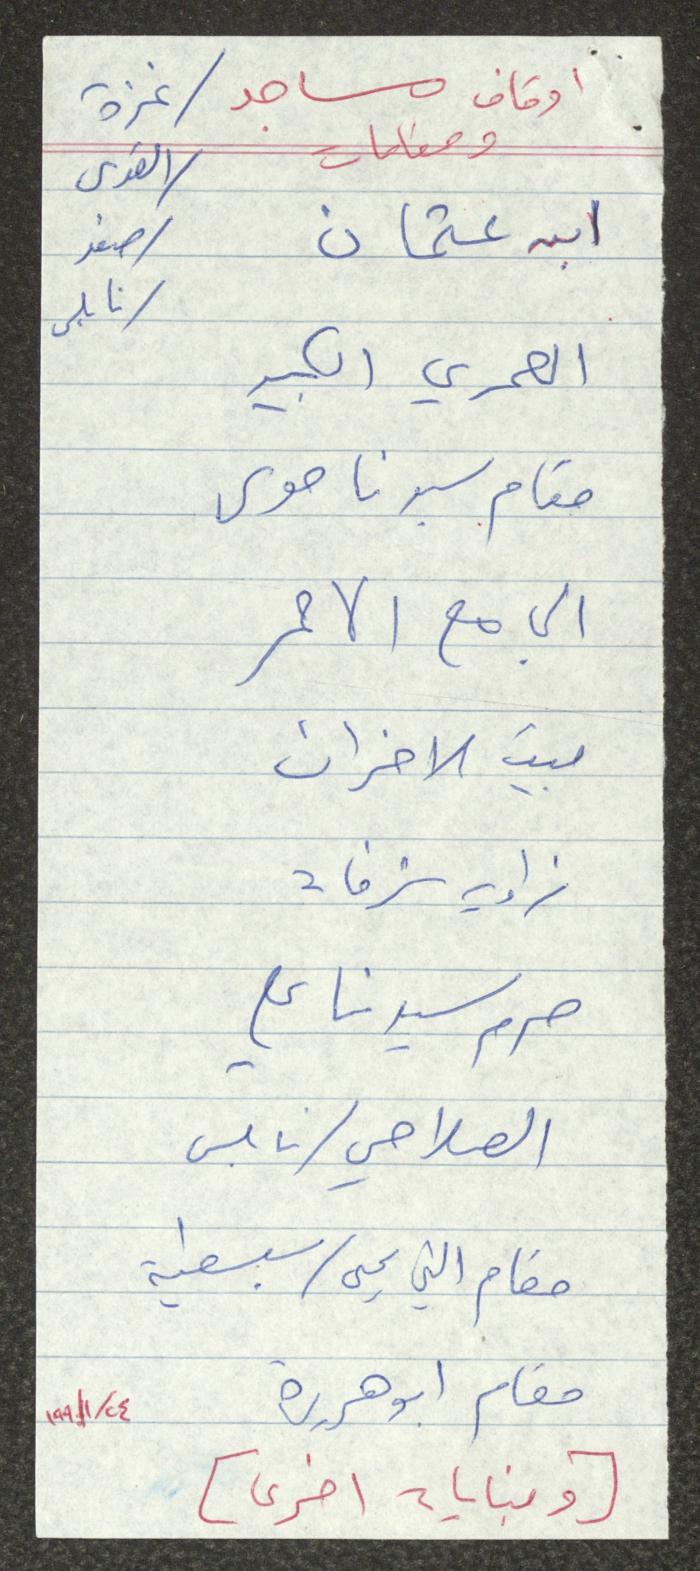 اوقاف مساجد / غزة
ومقامات
/ القدس
/ صفد
/ نابلس
ابن عثمان
العمري الكبير
مقام سيدنا موسى
الجامع الاحمر
بيت الاحزان
زاوية شرفات
حرم سيدنا علي
الصلاحي / نابلس
مقام النبي يحيى / سبسطية
مقام ابو هريرة
[وبنايات اخرى]